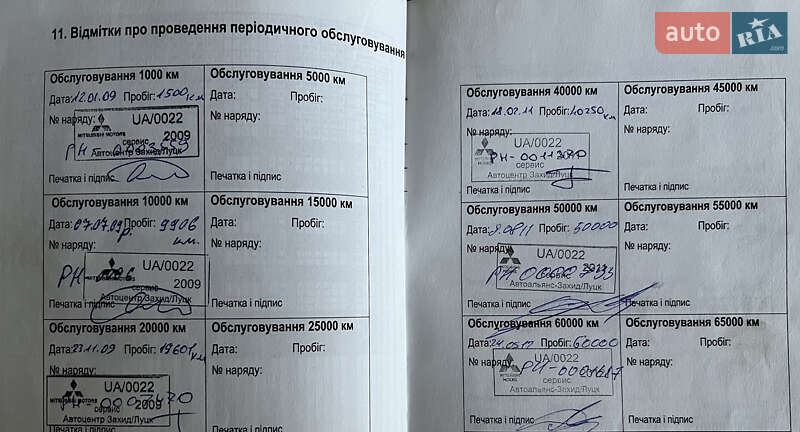 11. Відмітки про проведення періодичного обслуговування
Обслуговування 1000 км
Дата: 12.01.09 Пробіг: 1500 км
№ наряду:
UA/0022
MITSUBISHI MOTORS
сервіс 2009
Автоцентр Захід/Луцк
Печатка і підпис
Обслуговування 5000 км
Дата: Пробіг:
№ наряду:
Печатка і підпис
Обслуговування 10000 км
Дата: 07.07.09р. Пробіг: 9906 км.
№ наряду:
UA/0022
сервіс 2009
Автоцентр Захід/Луцк
Печатка і підпис
Обслуговування 15000 км
Дата: Пробіг:
№ наряду:
Печатка і підпис
Обслуговування 20000 км
Дата: 23.11.09 Пробіг: 19601 км
№ наряду:
UA/0022
MITSUBISHI MOTORS
сервіс 2009
Автоцентр Захід/Луцк
Печатка і підпис
Обслуговування 25000 км
Дата: Пробіг:
№ наряду:
Печатка і підпис
auto RIA.com
Обслуговування 40000 км
Дата: 18.02.11 Пробіг: 40250 км
№ наряду:
UA/0022
РН-0011370
сервіс
Автоцентр Захід/Луцк
Печатка і підпис
Обслуговування 45000 км
Дата: Пробіг:
№ наряду:
Печатка і підпис
Обслуговування 50000 км
Дата: Пробіг: 50000
№ наряду:
UA/0022
сервіс
Автоальянс-Захід/Луцк
Печатка і підпис
Обслуговування 55000 км
Дата: Пробіг:
№ наряду:
Печатка і підпис
Обслуговування 60000 км
Дата: Пробіг: 60000
№ наряду:
UA/0022
сервіс
Автоальянс-Захід/Луцк
Печатка і підпис
Обслуговування 65000 км
Дата: Пробіг:
№ наряду:
Печатка і підпис